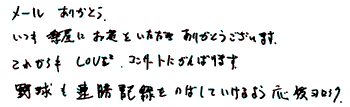 メール ありがとう.
いつも 部屋に お花をいただき ありがとうございます.
これからも LOVEを コンサートにがんばります.
野球も 連勝記録を のばしていけるよう 応援ヨロシク.